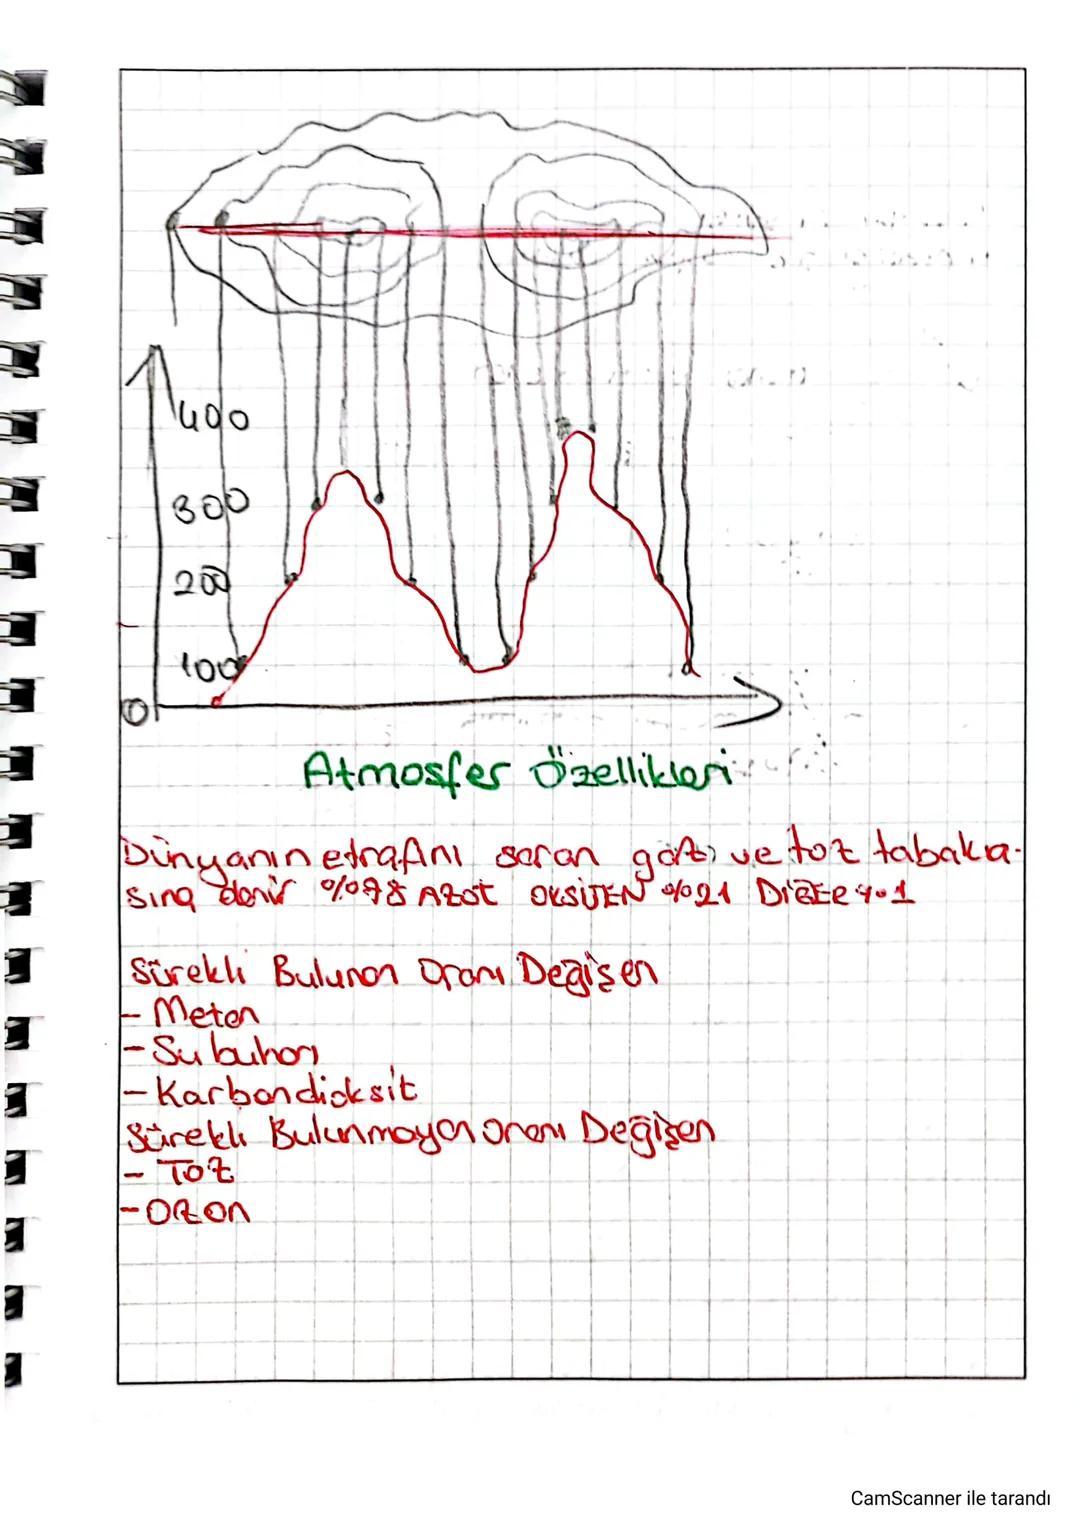 400
300
200
100
0
Atmosfer Özellikleri
Dünyanın etrafını saran gaz ve toz tabaka-
sına denir %78 Azot OKSİJEN %21 DİĞER %1
Sürekli Bulunan Oranı Değişen
- Metan
- Su buharı
- Karbondioksit
Sürekli Bulunmayan Oranı Değişen
- Toz
- Ozon
CamScanner ile tarandı